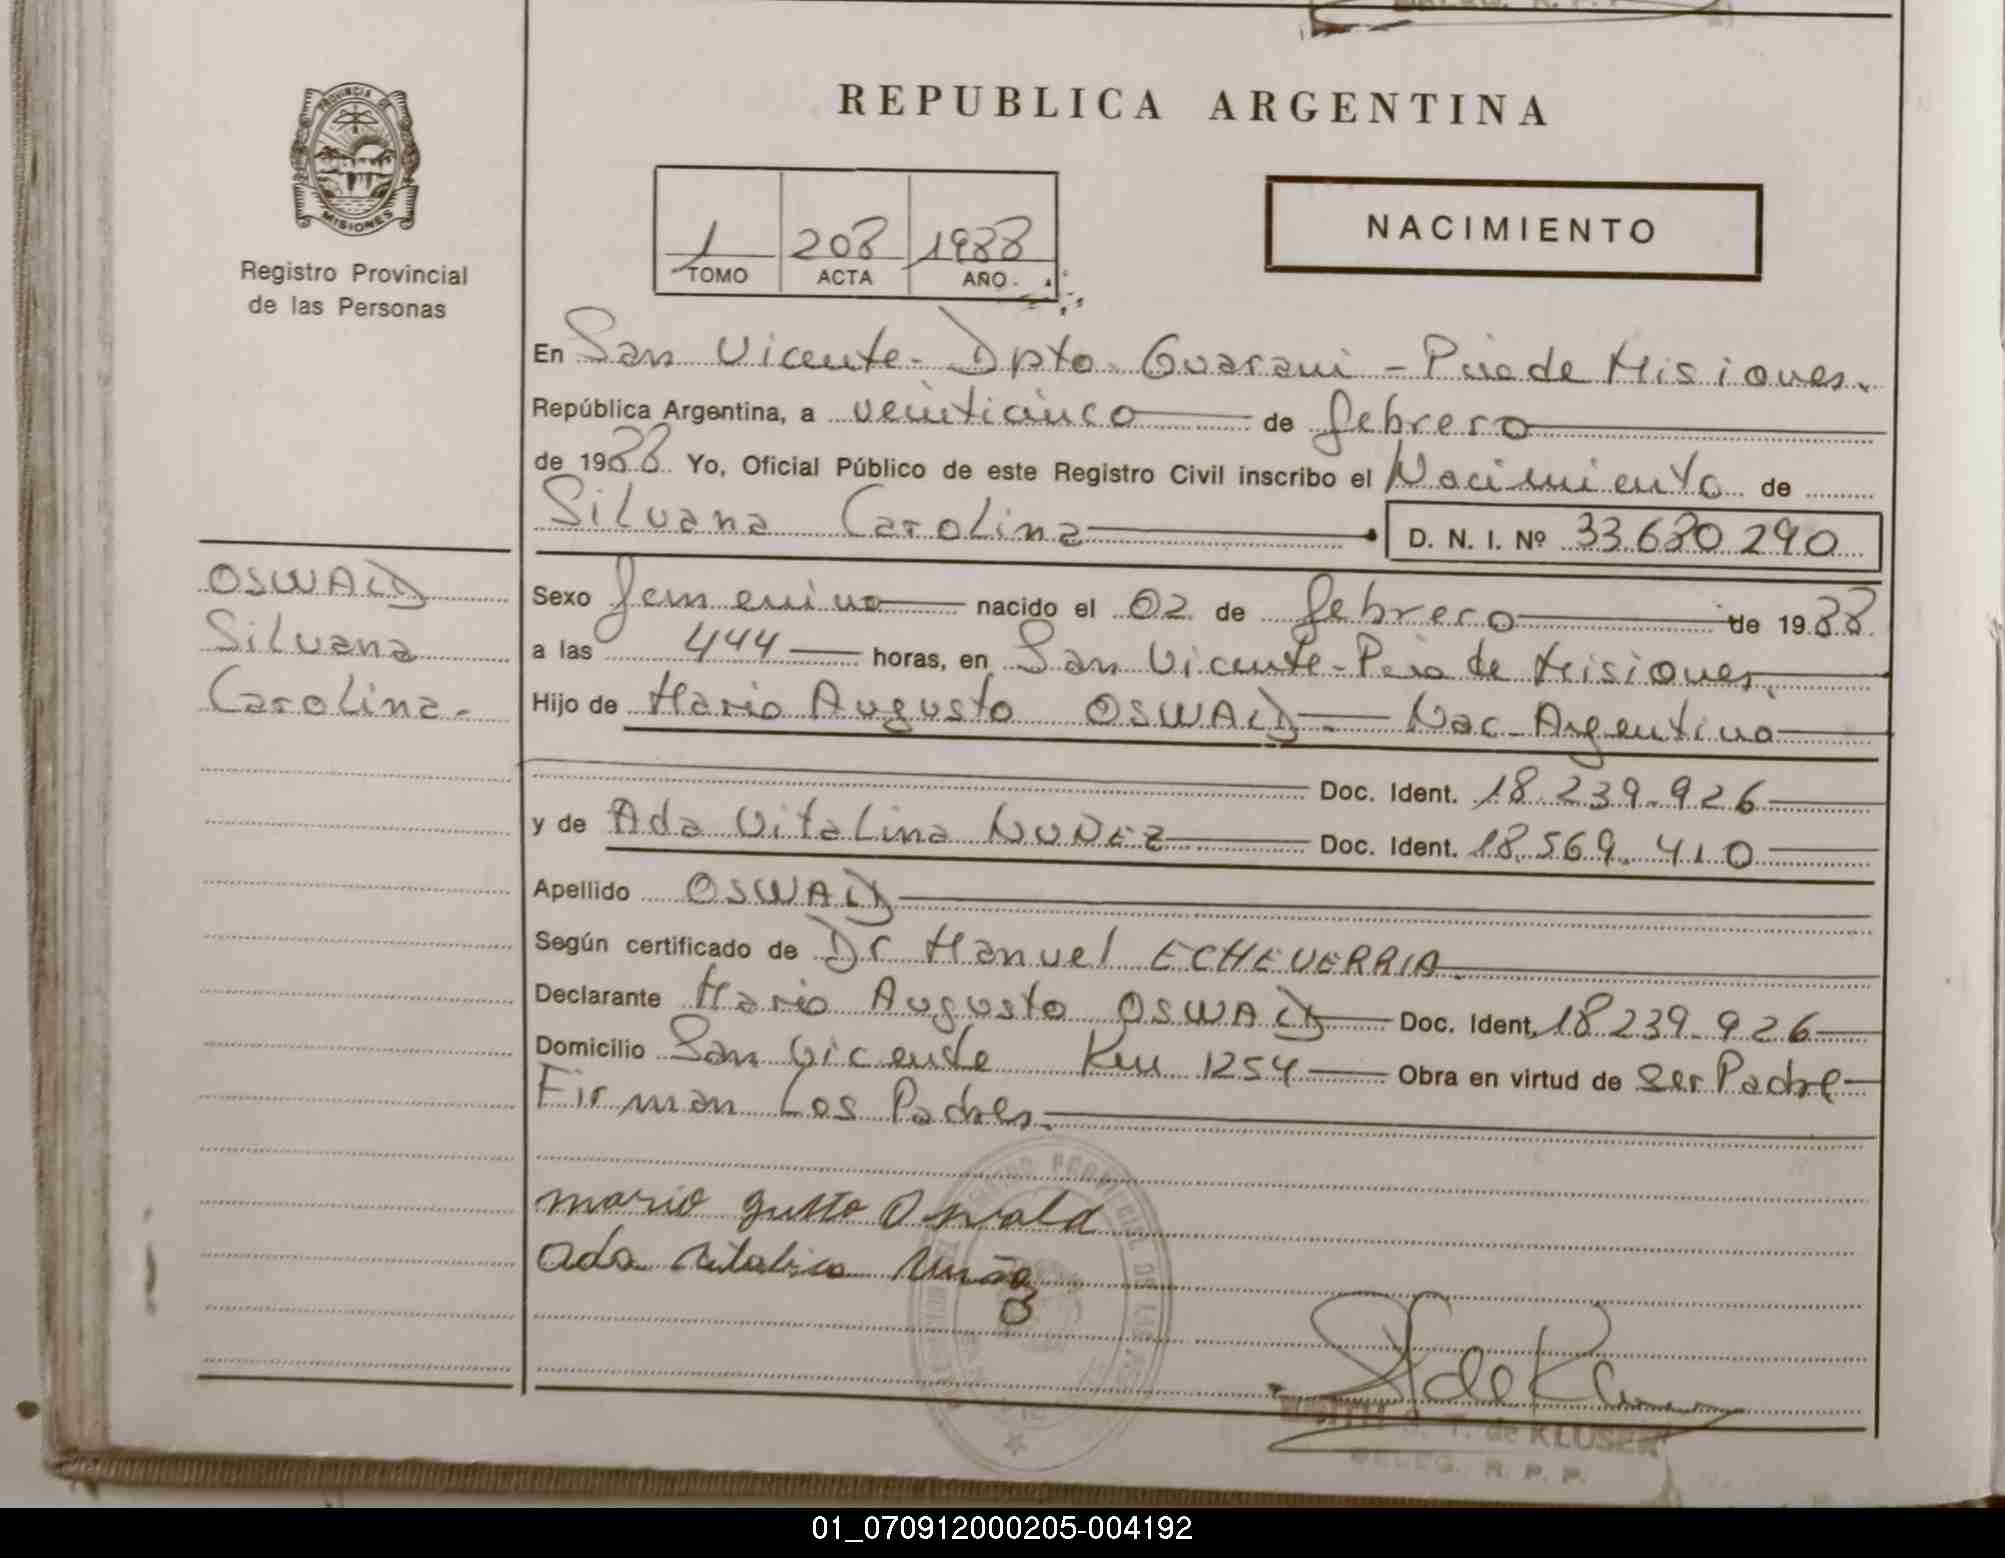 REPUBLICA ARGENTINA
PROVINCIA DE
MISIONES
Registro Provincial
de las Personas
1 208 1988
TOMO ACTA AÑO
NACIMIENTO
En San Vicente - Dpto. Guarani - Pcia de Misiones.
República Argentina, a veinticinco de febrero
de 1988 Yo, Oficial Público de este Registro Civil inscribo el Nacimiento de
Silvana Carolina D. N. I. Nº 33.680 290
OSWALD
Silvana
Carolina.-
Sexo femenino nacido el 02 de febrero de 1988
a las 444 horas, en San Vicente - Pcia de Misiones.
Hijo de Mario Augusto OSWALD. Nac. Argentina
Doc. Ident. 18.239.926
y de Ada Vitalina NUÑEZ Doc. Ident. 18.569.410
Apellido OSWALD
Según certificado de Dr Manuel ECHEVERRIA.
Declarante Mario Augusto OSWALD Doc. Ident. 18.239.926
Domicilio San Vicente Km 1254 Obra en virtud de ser Padre
Firman Los Padres.
mario Oswald
ada
T. de KLUSER
DELEG. R. P. P.
01_070912000205-004192